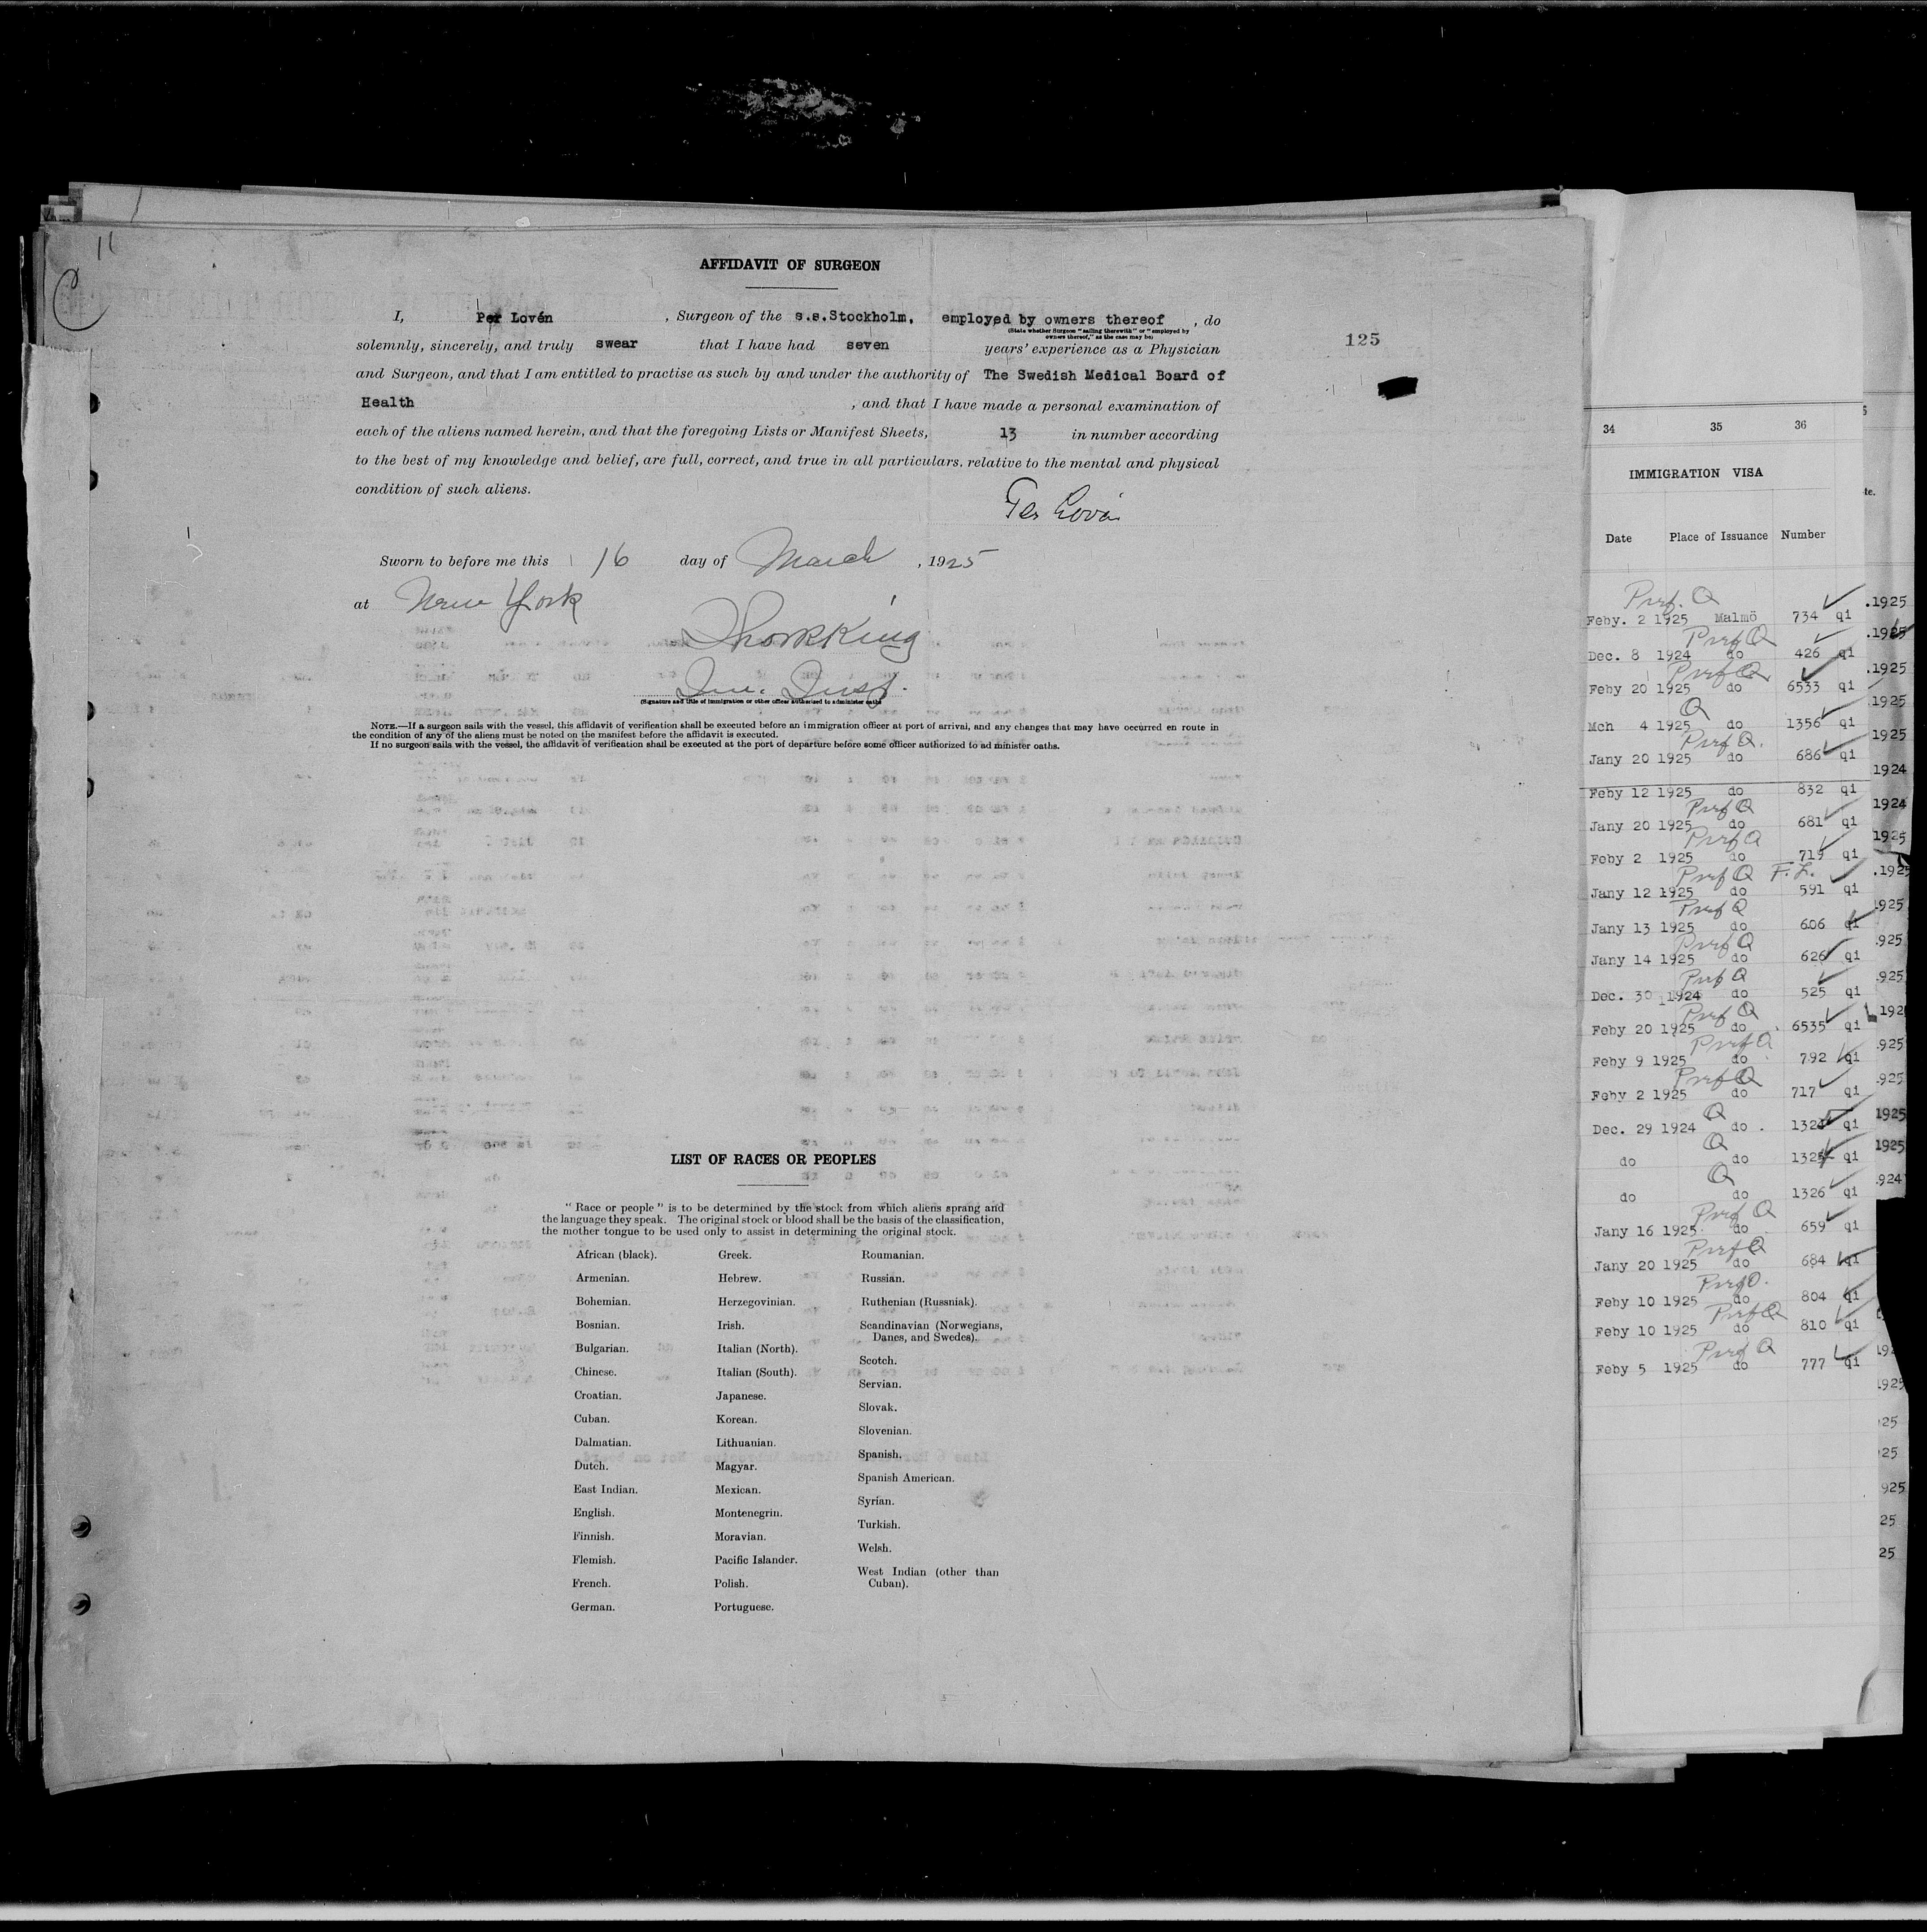 11
C
AFFIDAVIT OF SURGEON
I, Per Lovén , Surgeon of the s.s.Stockholm, employed by owners thereof , do
(State whether Surgeon "sailing therewith" or "employed by
owners thereof," as the case may be)
125
solemnly, sincerely, and truly swear that I have had seven years' experience as a Physician
and Surgeon, and that I am entitled to practise as such by and under the authority of The Swedish Medical Board of
Health , and that I have made a personal examination of
each of the aliens named herein, and that the foregoing Lists or Manifest Sheets, 13 in number according
to the best of my knowledge and belief, are full, correct, and true in all particulars, relative to the mental and physical
condition of such aliens.
Per Lovén
Sworn to before me this 16 day of March , 1925
at New York
(Signature and title of immigration or other officer authorized to administer oaths
NOTE.—If a surgeon sails with the vessel, this affidavit of verification shall be executed before an immigration officer at port of arrival, and any changes that may have occurred en route in
the condition of any of the aliens must be noted on the manifest before the affidavit is executed.
If no surgeon sails with the vessel, the affidavit of verification shall be executed at the port of departure before some officer authorized to administer oaths.
LIST OF RACES OR PEOPLES
"Race or people" is to be determined by the stock from which aliens sprang and
the language they speak. The original stock or blood shall be the basis of the classification,
the mother tongue to be used only to assist in determining the original stock.
African (black).
Armenian.
Bohemian.
Bosnian.
Bulgarian.
Chinese.
Croatian.
Cuban.
Dalmatian.
Dutch.
East Indian.
English.
Finnish.
Flemish.
French.
German.
Greek.
Hebrew.
Herzegovinian.
Irish.
Italian (North).
Italian (South).
Japanese.
Korean.
Lithuanian.
Magyar.
Mexican.
Montenegrin.
Moravian.
Pacific Islander.
Polish.
Portuguese.
Roumanian.
Russian.
Ruthenian (Russniak).
Scandinavian (Norwegians,
Danes, and Swedes).
Scotch.
Servian.
Slovak.
Slovenian.
Spanish.
Spanish American.
Syrian.
Turkish.
Welsh.
West Indian (other than
Cuban).
34 35 36
IMMIGRATION VISA
Date Place of Issuance Number
Pref. Q
Feby. 2 1925 Malmö 734 qi
Pref Q
Dec. 8 1924 do 426 qi
Pref Q
Feby 20 1925 do 6533 qi
Q
Mch 4 1925 do 1356 qi
Pref Q.
Jany 20 1925 do 686 qi
Feby 12 1925 do 832 qi
Pref Q
Jany 20 1925 do 681 qi
Pref Q
Feby 2 1925 do 719 qi
Pref Q F.L.
Jany 12 1925 do 591 qi
Pref Q
Jany 13 1925 do 606 qi
Pref Q
Jany 14 1925 do 626 qi
Pref Q
Dec. 30 1924 do 525 qi
Pref Q
Feby 20 1925 do 6535 qi
Pref Q
Feby 9 1925 do 792 qi
Pref Q
Feby 2 1925 do 717 qi
Q
Dec. 29 1924 do . 1324 qi
Q
do do 1325 qi
Q
do do 1326 qi
Pref Q
Jany 16 1925 do 659 qi
Pref Q
Jany 20 1925 do 684 qi
Pref Q.
Feby 10 1925 do 804 qi
Pref Q
Feby 10 1925 do 810 qi
Pref Q
Feby 5 1925 do 777 qi
te.
.1925
.1925
.1925
1925
1925
1924
1924
1925
.1925
.925
.925
.925
192
.925
.925
1925
1925
.924
192
1925
25
25
925
25
25